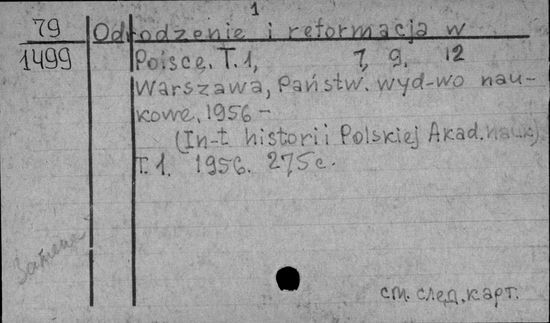 1
79 Odrodzenie i reformacja w
1499 Poisce. T. 1, 7, 9, 12
Warszawa, Państw. wyd-wo nau-
kowe, 1956 –
(In-t historii Polskiej Akad. nauk)
T. 1. 1956. 275 c.
см. след. карт.